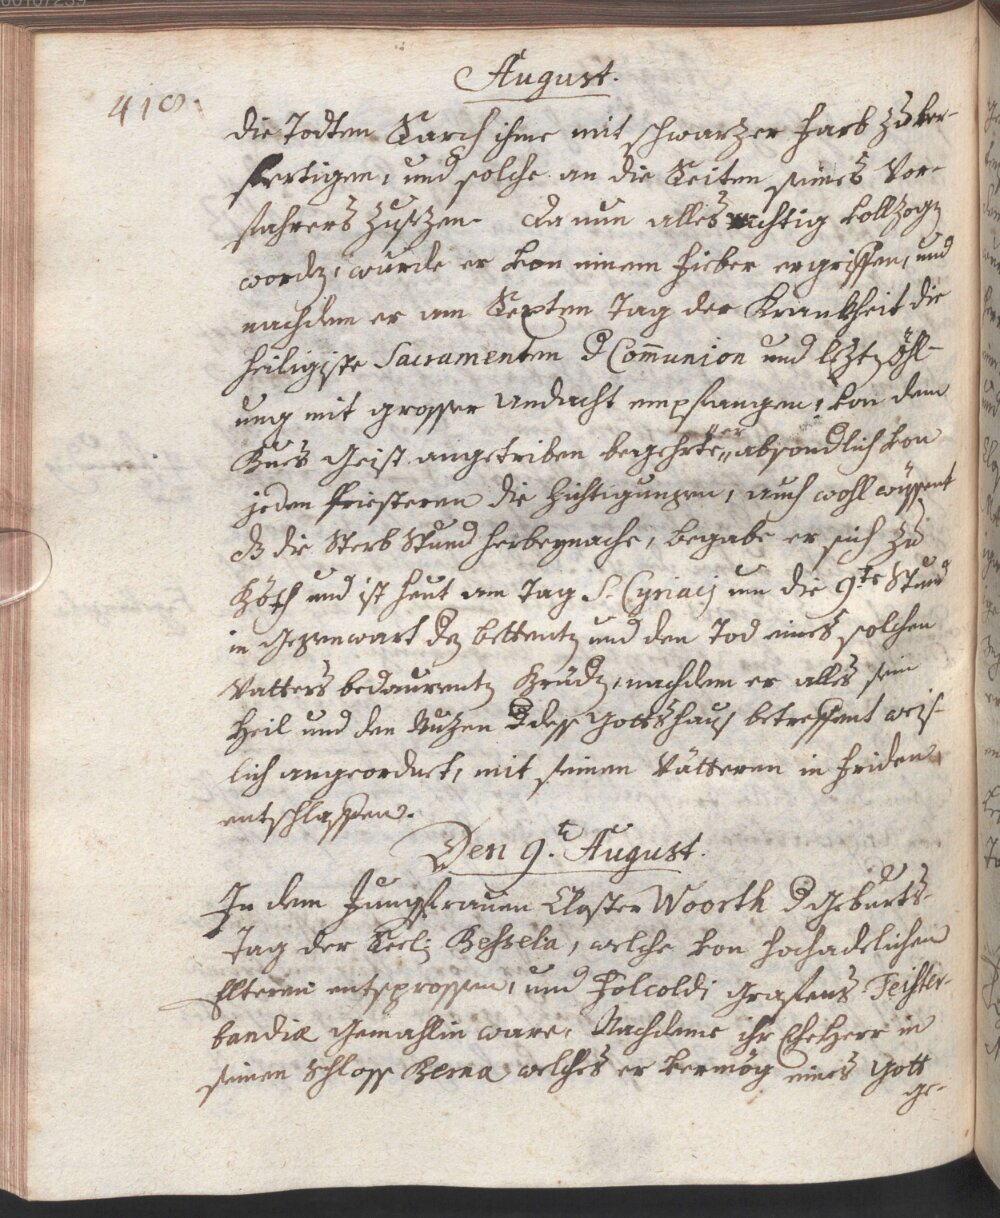 August.
418.
die Todten Sarch ihme mit schwartzer farb zu ver-
fertigen, und solche an die Seiten seines Vor-
fahrers zusezen. da nun alles richtig vollzogen
worden, wurde er von einem fieber ergriffen, und
nachdem er am Sexten Tag der Krankheit die
heiligiste Sacramenten der Communion und leztn Öhl-
ung mit grosser Andacht empfangen, von dem
Geist angetriben begehrte er absondlich von
jeden Priesteren die , auch wohl wüssent
dz die Sterb Stund herbeynache, begabe er sich zu
Beth und ist heut am Tag S. Cyriacj um die 9te Stund
in Gegenwart der bettentn und den Tod eines solchen
Vatters bedaurentn Brüdn, nachdem er alles sein
Heil und den Nuzen dess Gottshaus betreffent weis-
lich angeordnet, mit seinen Vätteren in friden
entschlaffen.
Den 9.t August.
In dem Jungfrauen Closter Woorth der Geburts-
Tag der Seel: Betzela, welche von hochadelichen
Elteren entsprossen, und Folcoldi Grafens Teister-
bandiæ Gemahlin ware. Nachdeme ihr EheHerr in
seinem Schloss Berna welches er vermög eines Gott
ge-